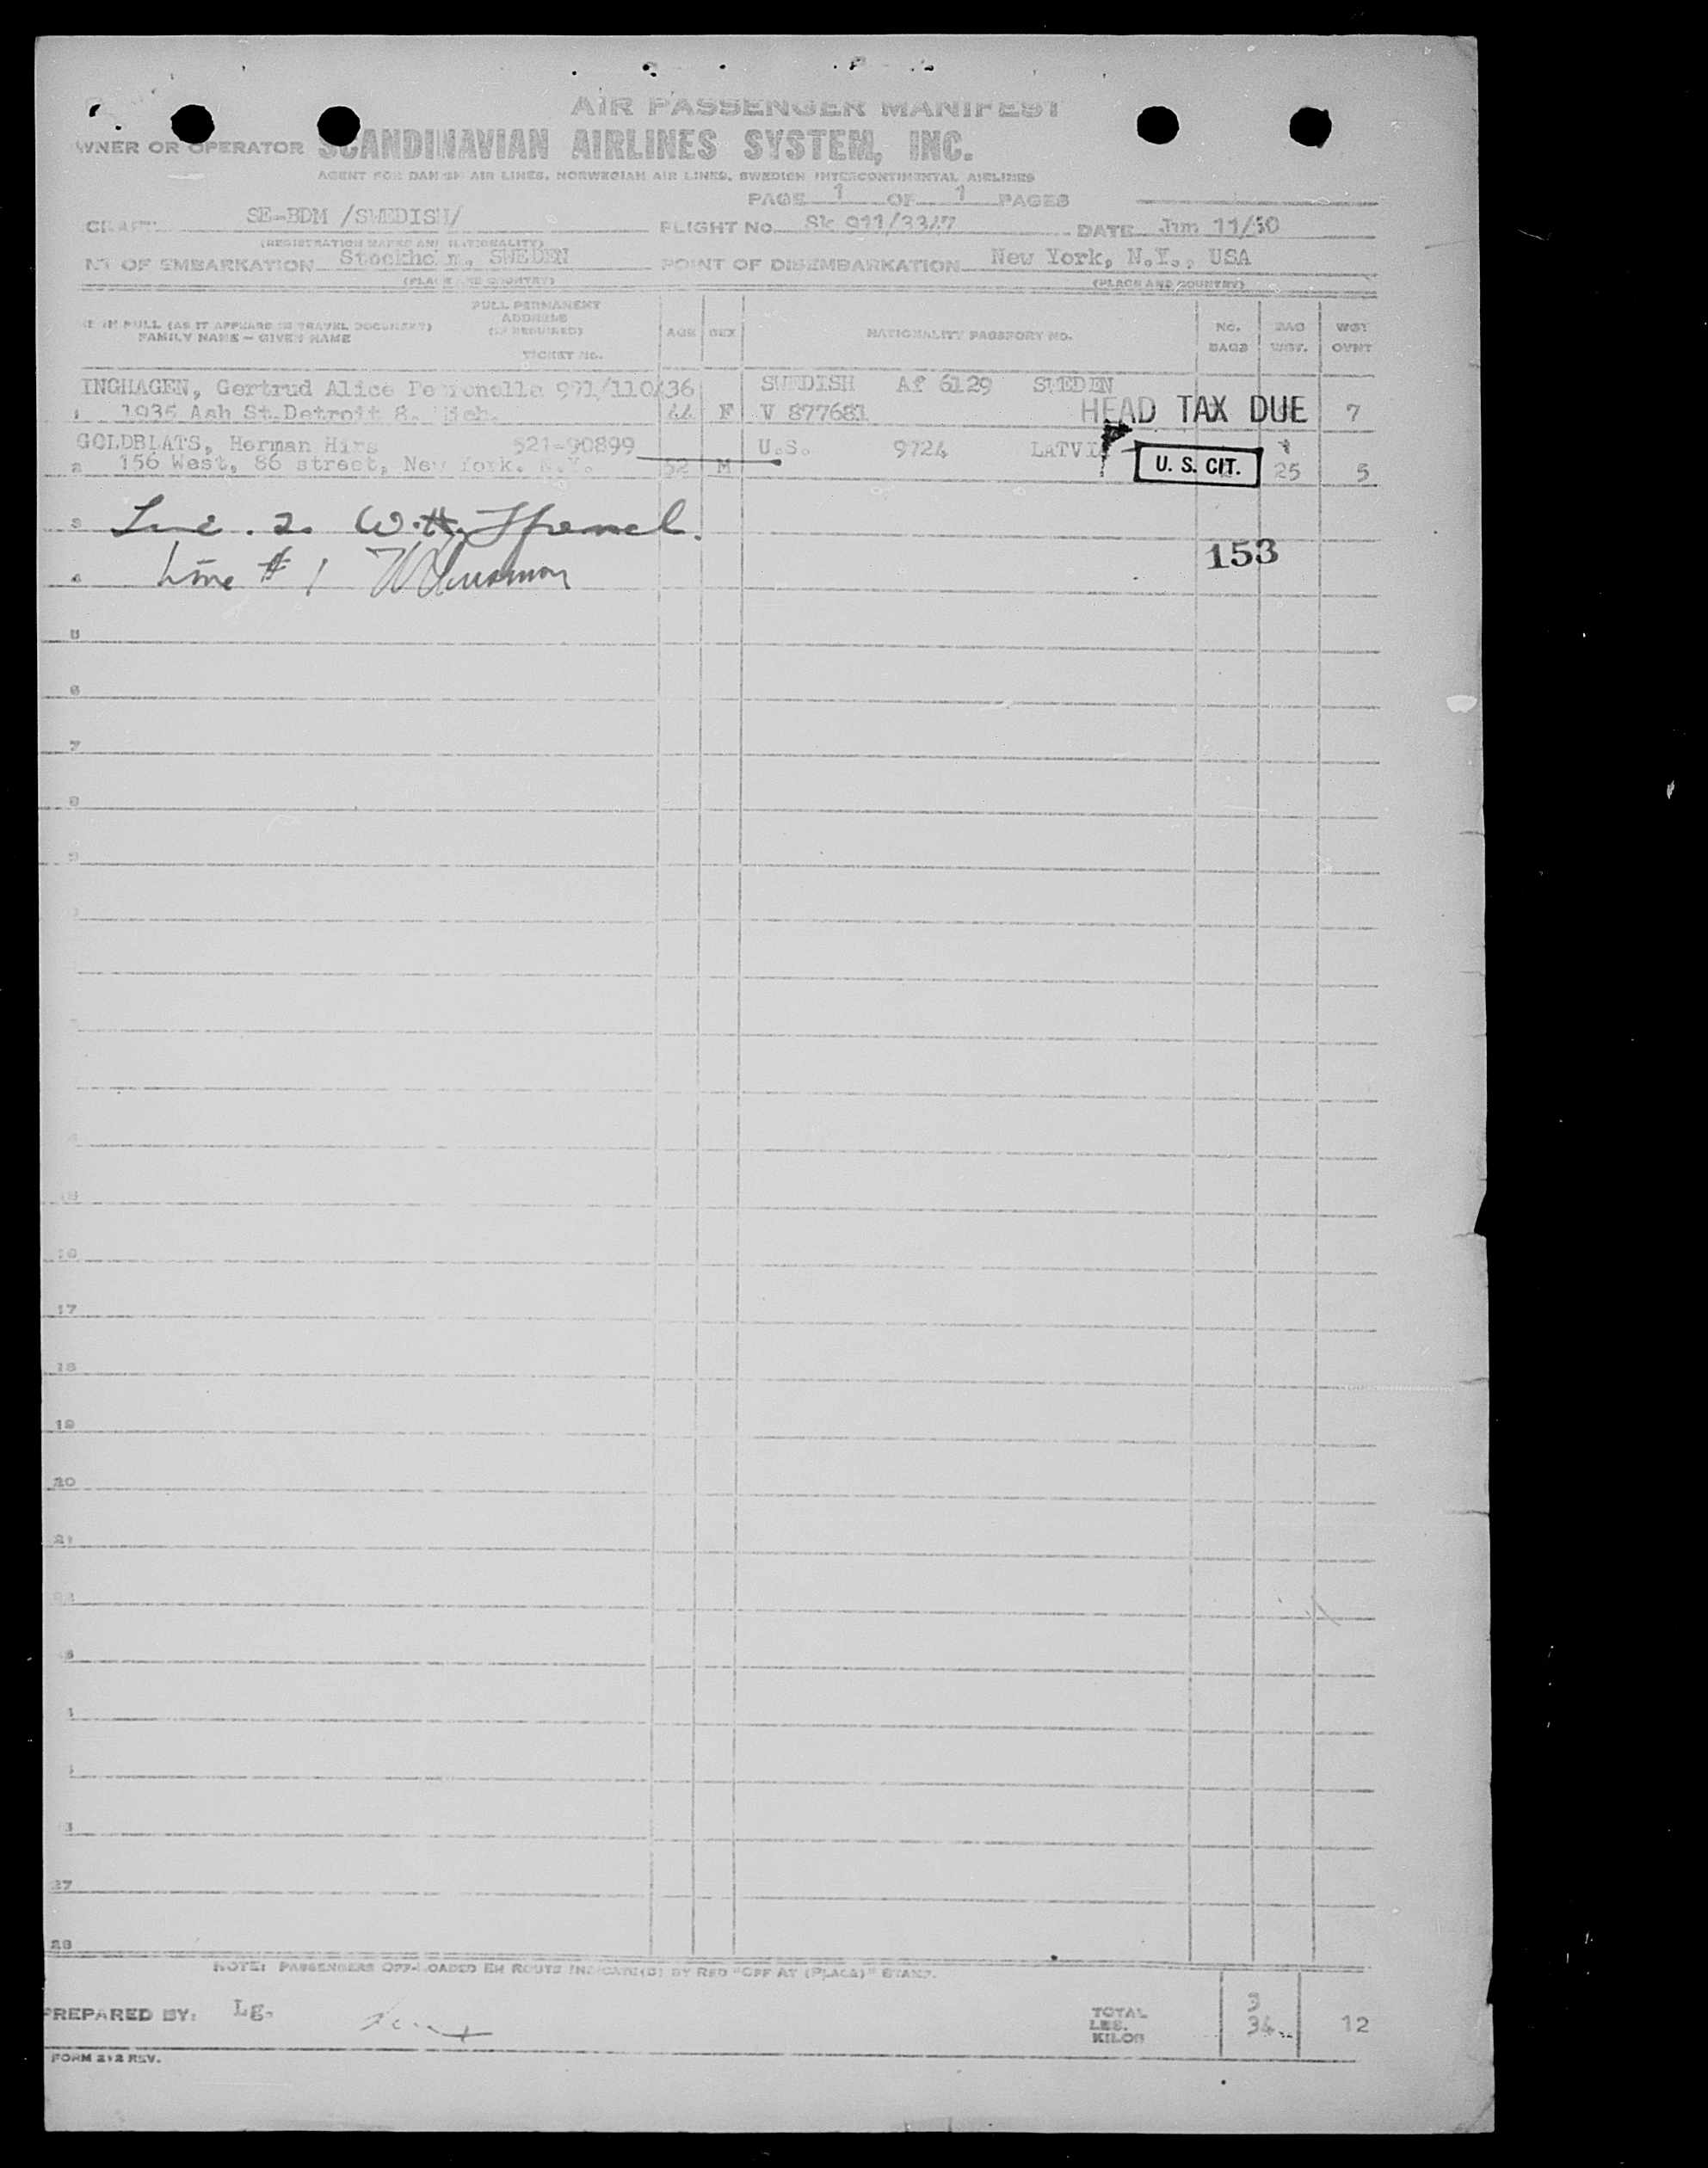 AIR PASSENGER MANIFEST
WNER OR OPERATOR SCANDINAVIAN AIRLINES SYSTEM, INC.
AGENT FOR DANISH AIR LINES, NORWEGIAN AIR LINES, SWEDISH INTERCONTINENTAL AIRLINES
PAGE 1 OF 1 PAGES
CRAFT SE-BDM /SWEDISH/ FLIGHT No. Sk 911/3347 DATE Jun 11/50
(REGISTRATION MARKS AND NATIONALITY)
NT OF EMBARKATION Stockholm, SWEDEN POINT OF DISEMBARKATION New York, N.Y., USA
(PLACE AND COUNTRY) (PLACE AND COUNTRY)
FULL PERMANENT
ADDRESS
(IF REQUIRED)
E IN FULL (AS IT APPEARS IN TRAVEL DOCUMENT)
FAMILY NAME — GIVEN NAME
TICKET No.
AGE SEX NATIONALITY PASSPORT No. No. BAGS BAG WGT. WGT OVNT
INGHAGEN, Gertrud Alice Petronella 971/110436 SWEDISH Af 6129 SWEDEN
1 1935 Ash St. Detroit 8. Mich. 44 F V 877681 HEAD TAX DUE 7
GOLDBLATS, Herman Hirs 521-90899 U.S. 9724 LATVI
2 156 West, 86 street, New York. N.Y. 52 M U. S. CIT. 25 5
3 Line 2.
4 Line # 1
153
5
6
7
8
9
15
16
17
18
19
20
21
22
27
28
NOTE: PASSENGERS OFF-LOADED EN ROUTE INDICATE(D) BY RED "OFF AT (PLACE)" STAMP.
PREPARED BY: Lg.
TOTAL 3
LBS.
KILOS 34 12
FORM 212 REV.